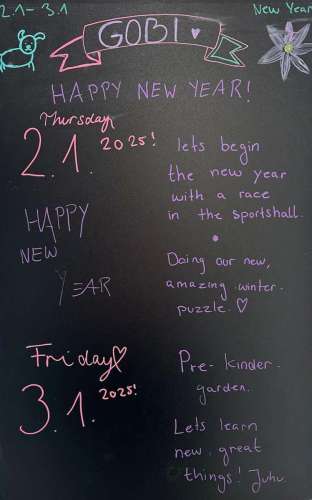 2.1-3.1
GOBI ♥
New Year
HAPPY NEW YEAR!
Thursday
2.1. 2025!
lets begin
the new year
with a race
in the sportshall.
•
Doing our new,
amazing winter.
puzzle. ♡
HAPPY
NEW
YEAR
Friday♡
3.1. 2025!
Pre-kinder-
garden.
Lets learn
new, great
things! Juhu.